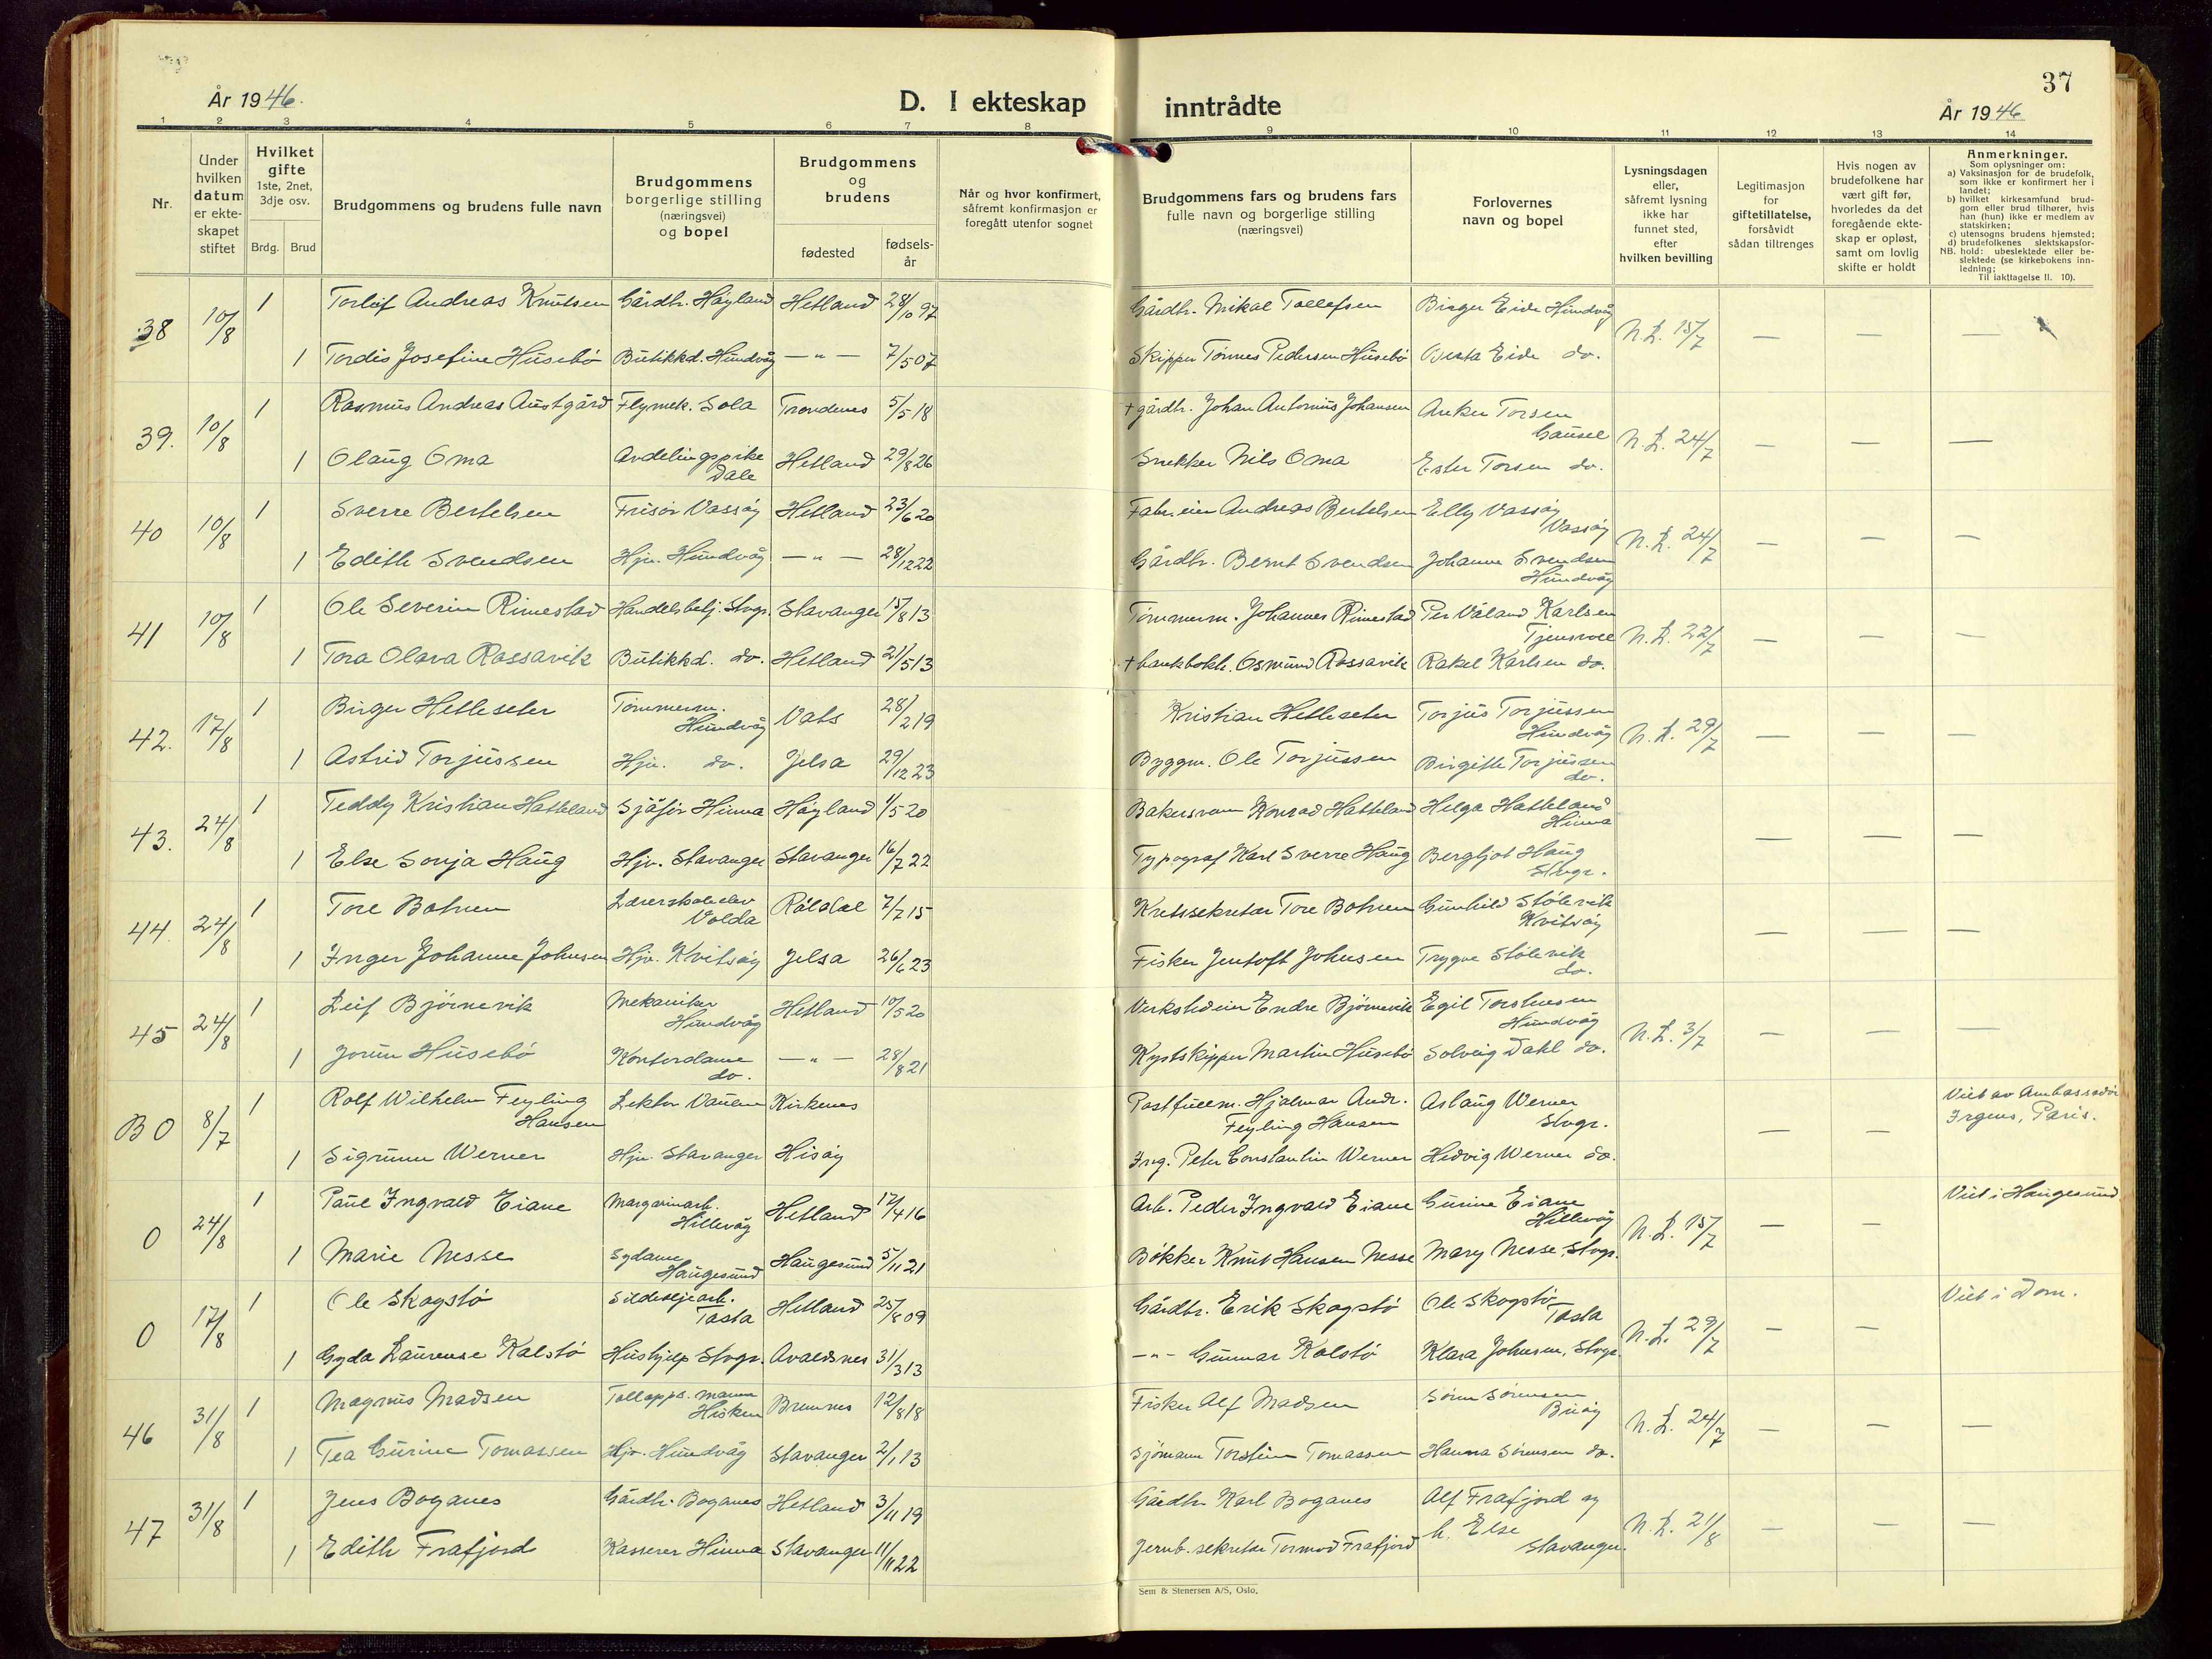 År 1946.
D. I ekteskap inntrådte
37
År 1946
1 2 3 4 5 6 7 8 9 10 11 12 13 14
Nr.
Under hvilken datum er ekteskapet stiftet
Hvilket gifte 1ste, 2net, 3dje osv.
Brdg. Brud
Brudgommens og brudens fulle navn
Brudgommens borgerlige stilling (næringsvei) og bopel
Brudgommens og brudens
fødested
fødselsår
Når og hvor konfirmert, såfremt konfirmasjon er foregått utenfor sognet
Brudgommens fars og brudens fars fulle navn og borgerlige stilling (næringsvei)
Forlovernes navn og bopel
Lysningsdagen eller, såfremt lysning ikke har funnet sted, efter hvilken bevilling
Legitimasjon for giftetillatelse, forsåvidt sådan tiltrenges
Hvis nogen av brudefolkene har vært gift før, hvorledes da det foregående ekteskap er opløst, samt om lovlig skifte er holdt
Anmerkninger.
Som oplysninger om:
a) Vaksinasjon for de brudefolk, som ikke er konfirmert her i landet;
b) hvilket kirkesamfund brudgom eller brud tilhører, hvis han (hun) ikke er medlem av statskirken;
c) utensogns brudens hjemsted;
d) brudefolkenes slektskapsforhold: ubeslektede eller beslektede (se kirkebokens innledning;
NB. Til iakttagelse II. 10).
38 10/8 1 Torleif Andreas Knutsen Gårdbr. Høyland Hetland 28/10 97 Gårdbr. Mikal Tollefsen Birger Eide Hundvåg N.L. 15/7 — — —
1 Tordis Josefine Husebø Butikkd. Hundvåg —"— 7/5 07 Skipper Tønnes Pedersen Husebø Berta Eide do.
39. 10/8 1 Rasmus Andreas Austgård Flymek. Sola Trondenes 5/5 18 + gårdbr. Johan Antonius Johansen Anker Torsen Gausel N.L. 24/7 — — —
1 Olaug Oma Avdelingspike Dale Hetland 29/8 26 Snekker Nils Oma Ester Torsen do.
40 10/8 1 Sverre Bertelsen Frisør Vassøy Hetland 23/6 20 Fabr.eier Andreas Bertelsen Elly Vassøy Vassøy N.L. 24/7 — — —
1 Edith Svendsen Hjv. Hundvåg —"— 28/12 22 Gårdbr. Bernt Svendsen Johanne Svendsen Hundvåg
41 10/8 1 Ole Severin Rimestad Handelsbetj. Stvgr. Stavanger 15/8 13 Tømmerm. Johannes Rimestad Per Våland Karlsen Tjensvoll N.L. 22/7 — — —
1 Tora Olava Rossavik Butikkd. do. Hetland 21/5 13 + bankbokh. Osmund Rossavik Rakel Karlsen do.
42. 17/8 1 Birger Hetleseter Tømmerm. Hundvåg Vats 28/2 19 Kristian Hetleseter Torjus Torjussen Hundvåg N.L. 29/7 — — —
1 Astrid Torjussen Hjv. do. Jelsa 29/12 23 Byggm. Ole Torjussen Birgith Torjussen do.
43. 24/8 1 Teddy Kristian Hatteland Sjåfør Hinna Høyland 1/5 20 Bakersvenn Konrad Hatteland Helga Hatteland Hinna — — —
1 Else Sonja Haug Hjv. Stavanger Stavanger 16/7 22 Typograf Karl Sverre Haug Bergljot Haug Stvgr.
44. 24/8 1 Tore Botnen Lærerskoleelev Volda Røldal 7/7 15 Kretssekretær Tore Botnen Gunhild Stølevik Kvitsøy — — —
1 Inger Johanne Johnsen Hjv. Kvitsøy Jelsa 26/6 23 Fisker Jentoft Johnsen Trygve Stølevik do.
45 24/8 1 Leif Bjørnevik Mekaniker Hundvåg Hetland 10/5 20 Verkstedeier Endre Bjørnevik Egil Torstensen Hundvåg N.L. 3/7 — — —
1 Jorun Husebø Kontordame do. —"— 28/8 21 Kystskipper Martin Husebø Solveig Dahl do.
B O 8/7 1 Rolf Wilhelm Feyling Hansen Lektor Kirkenes Postfullm. Hjalmar Andr. Feyling Hansen Aslaug Werner Stvgr. — — Viet av Ambassadør Irgens, Paris.
1 Sigrunn Werner Hjv. Stavanger Hisøy Ing. Peter Constantin Werner Hedvig Werner do.
O 24/8 1 Paul Ingvald Eiane Margarinarb. Hillevåg Hetland 17/4 16 Arb. Peder Ingvald Eiane Gurine Eiane Hillevåg N.L. 15/7 — — Viet i Haugesund
1 Marie Nesse Sydame Haugesund Haugesund 5/11 21 Bøkker Knut Hansen Nesse Mary Nesse, Stvgr.
O 17/8 1 Ole Skogstø Sildoljearb. Tasta Hetland 25/8 09 Gårdbr. Erik Skogstø Ole Skogstø Tasta N.L. 29/7 — — Viet i Dom.
1 Gyda Laurense Kalstø Hushjelp Stvgr. Avaldsnes 31/3 13 —"— Gunnar Kalstø Klara Johnsen, Stvgr.
46 31/8 1 Magnus Madsen Tollopps.mann Hisken Bremnes 12/8 18 Fisker Alf Madsen Søren Sørensen Buøy N.L. 24/7 — — —
1 Tea Gurine Tomassen Hjv. Hundvåg Stavanger 2/1 13 Sjømann Torstein Tomassen Hanna Sørensen do.
47 31/8 1 Jens Boganes Gårdbr. Boganes Hetland 3/11 19 Gårdbr. Karl Boganes Alf Frafjord og N.L. 21/8 — — —
1 Edith Frafjord Kasserer Hinna Stavanger 11/11 22 Jernb.sekretær Tormod Frafjord h. Else Stavanger.
Sem & Stenersen A/S, Oslo.